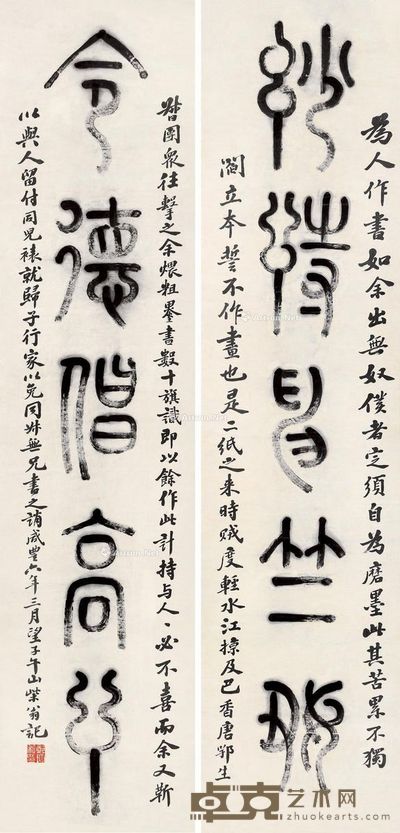 為人作書如余出無奴僕者定須自為磨墨此其苦累不獨
持身竺
閻立本誓不作畫也是二紙之来時賊度輕水江掠及巴香唐鄂生
團衆往擊之余煨粗書數十旗識即以餘作此計持与人、必不喜而余又靳
令德倡高
以與人留付同兒裱就歸子行家以免同姊無兄書之誚咸豐六年三月望子午山柴翁記
卓克艺术网
www.zhuokearts.com